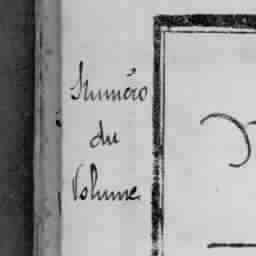 Numéro
du
Volume